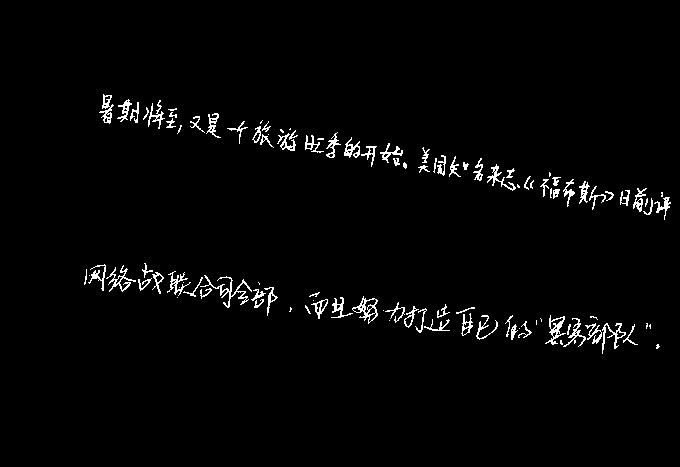 暑期将至,又是一个旅游旺季的开始。美国知名杂志《福布斯》日前评
网络战联合司令部,而且努力打造自己的“黑客部队”。